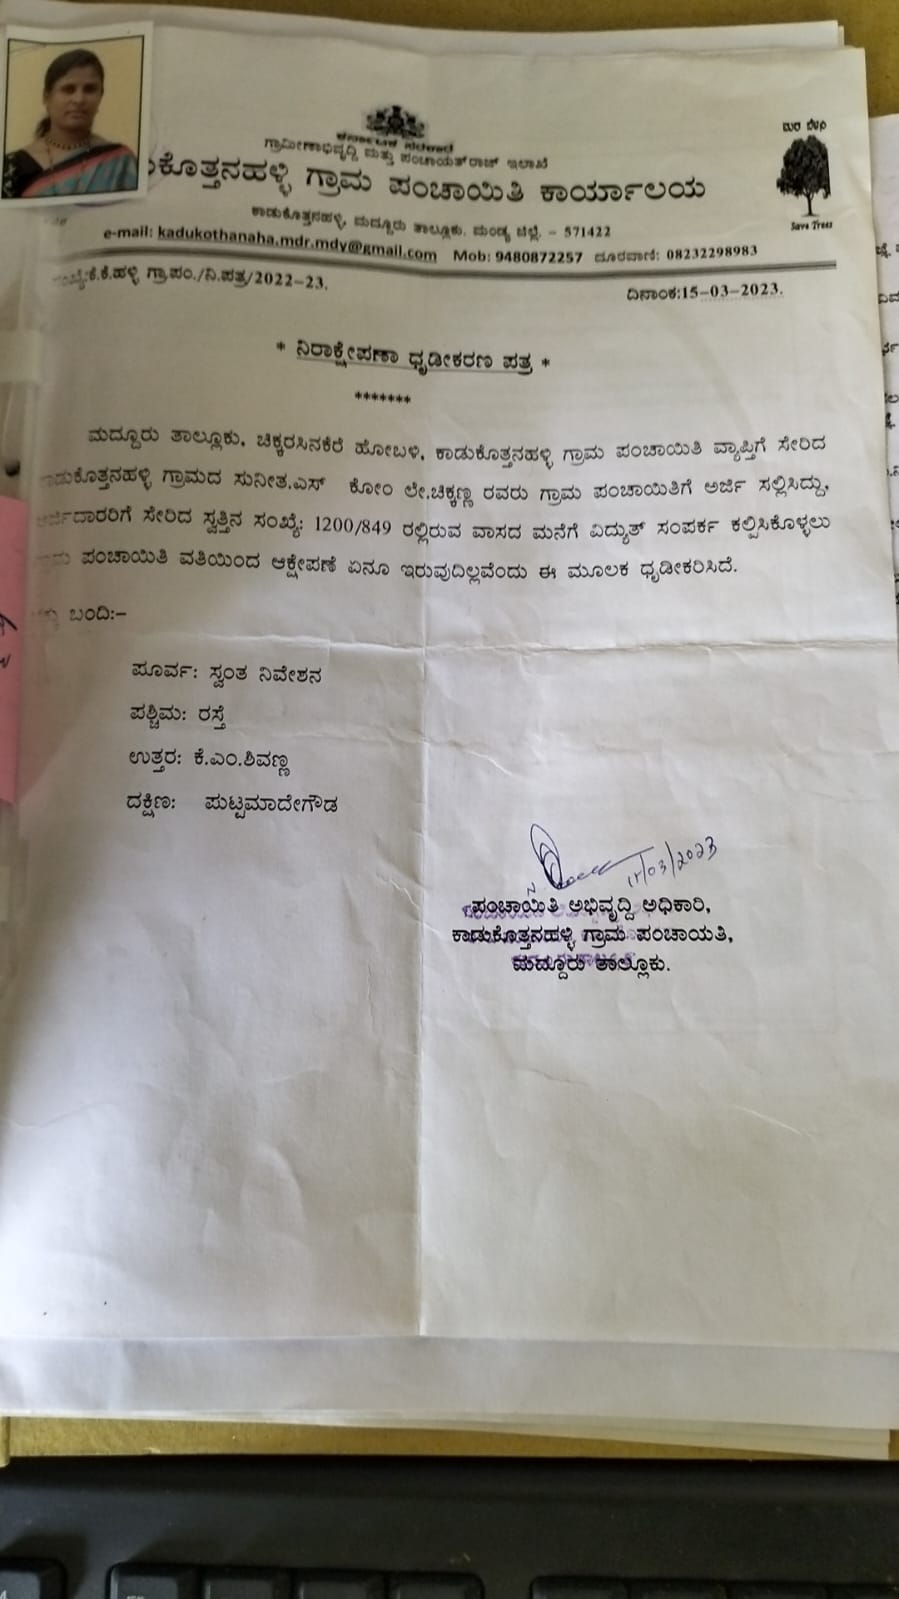 ಕರ್ನಾಟಕ ಸರಕಾರ
ಗ್ರಾಮೀಣಾಭಿವೃದ್ಧಿ ಮತ್ತು ಪಂಚಾಯತ್‌ರಾಜ್ ಇಲಾಖೆ
ಕೊತ್ತನಹಳ್ಳಿ ಗ್ರಾಮ ಪಂಚಾಯಿತಿ ಕಾರ್ಯಾಲಯ
ಕಾಡುಕೊತ್ತನಹಳ್ಳಿ, ಮದ್ದೂರು ತಾಲ್ಲೂಕು. ಮಂಡ್ಯ ಜಿಲ್ಲೆ. – 571422
e-mail: kadukothanaha.mdr.mdy@gmail.com Mob: 9480872257 ದೂರವಾಣಿ: 08232298983
ಮರ ಬೆಳೆಸಿ
Save Trees
ಕೆ.ಕೆ.ಹಳ್ಳಿ ಗ್ರಾ.ಪಂ./ನಿ.ಪತ್ರ/2022-23.
ದಿನಾಂಕ:15-03-2023.
* ನಿರಾಕ್ಷೇಪಣಾ ಧೃಡೀಕರಣ ಪತ್ರ *
*******
ಮದ್ದೂರು ತಾಲ್ಲೂಕು, ಚಿಕ್ಕರಸಿನಕೆರೆ ಹೋಬಳಿ, ಕಾಡುಕೊತ್ತನಹಳ್ಳಿ ಗ್ರಾಮ ಪಂಚಾಯಿತಿ ವ್ಯಾಪ್ತಿಗೆ ಸೇರಿದ
ಕಾಡುಕೊತ್ತನಹಳ್ಳಿ ಗ್ರಾಮದ ಸುನೀತ.ಎಸ್ ಕೋಂ ಲೇ.ಚಿಕ್ಕಣ್ಣ ರವರು ಗ್ರಾಮ ಪಂಚಾಯಿತಿಗೆ ಅರ್ಜಿ ಸಲ್ಲಿಸಿದ್ದು,
ಅರ್ಜಿದಾರರಿಗೆ ಸೇರಿದ ಸ್ವತ್ತಿನ ಸಂಖ್ಯೆ: 1200/849 ರಲ್ಲಿರುವ ವಾಸದ ಮನೆಗೆ ವಿದ್ಯುತ್ ಸಂಪರ್ಕ ಕಲ್ಪಿಸಿಕೊಳ್ಳಲು
ಗ್ರಾಮ ಪಂಚಾಯಿತಿ ವತಿಯಿಂದ ಆಕ್ಷೇಪಣೆ ಏನೂ ಇರುವುದಿಲ್ಲವೆಂದು ಈ ಮೂಲಕ ಧೃಡೀಕರಿಸಿದೆ.
ಬಂದಿ:–
ಪೂರ್ವ: ಸ್ವಂತ ನಿವೇಶನ
ಪಶ್ಚಿಮ: ರಸ್ತೆ
ಉತ್ತರ: ಕೆ.ಎಂ.ಶಿವಣ್ಣ
ದಕ್ಷಿಣ: ಪುಟ್ಟಮಾದೇಗೌಡ
15/03/2023
ಪಂಚಾಯಿತಿ ಅಭಿವೃದ್ದಿ ಅಧಿಕಾರಿ,
ಕಾಡುಕೊತ್ತನಹಳ್ಳಿ ಗ್ರಾಮ ಪಂಚಾಯತಿ,
ಮದ್ದೂರು ತಾಲ್ಲೂಕು.